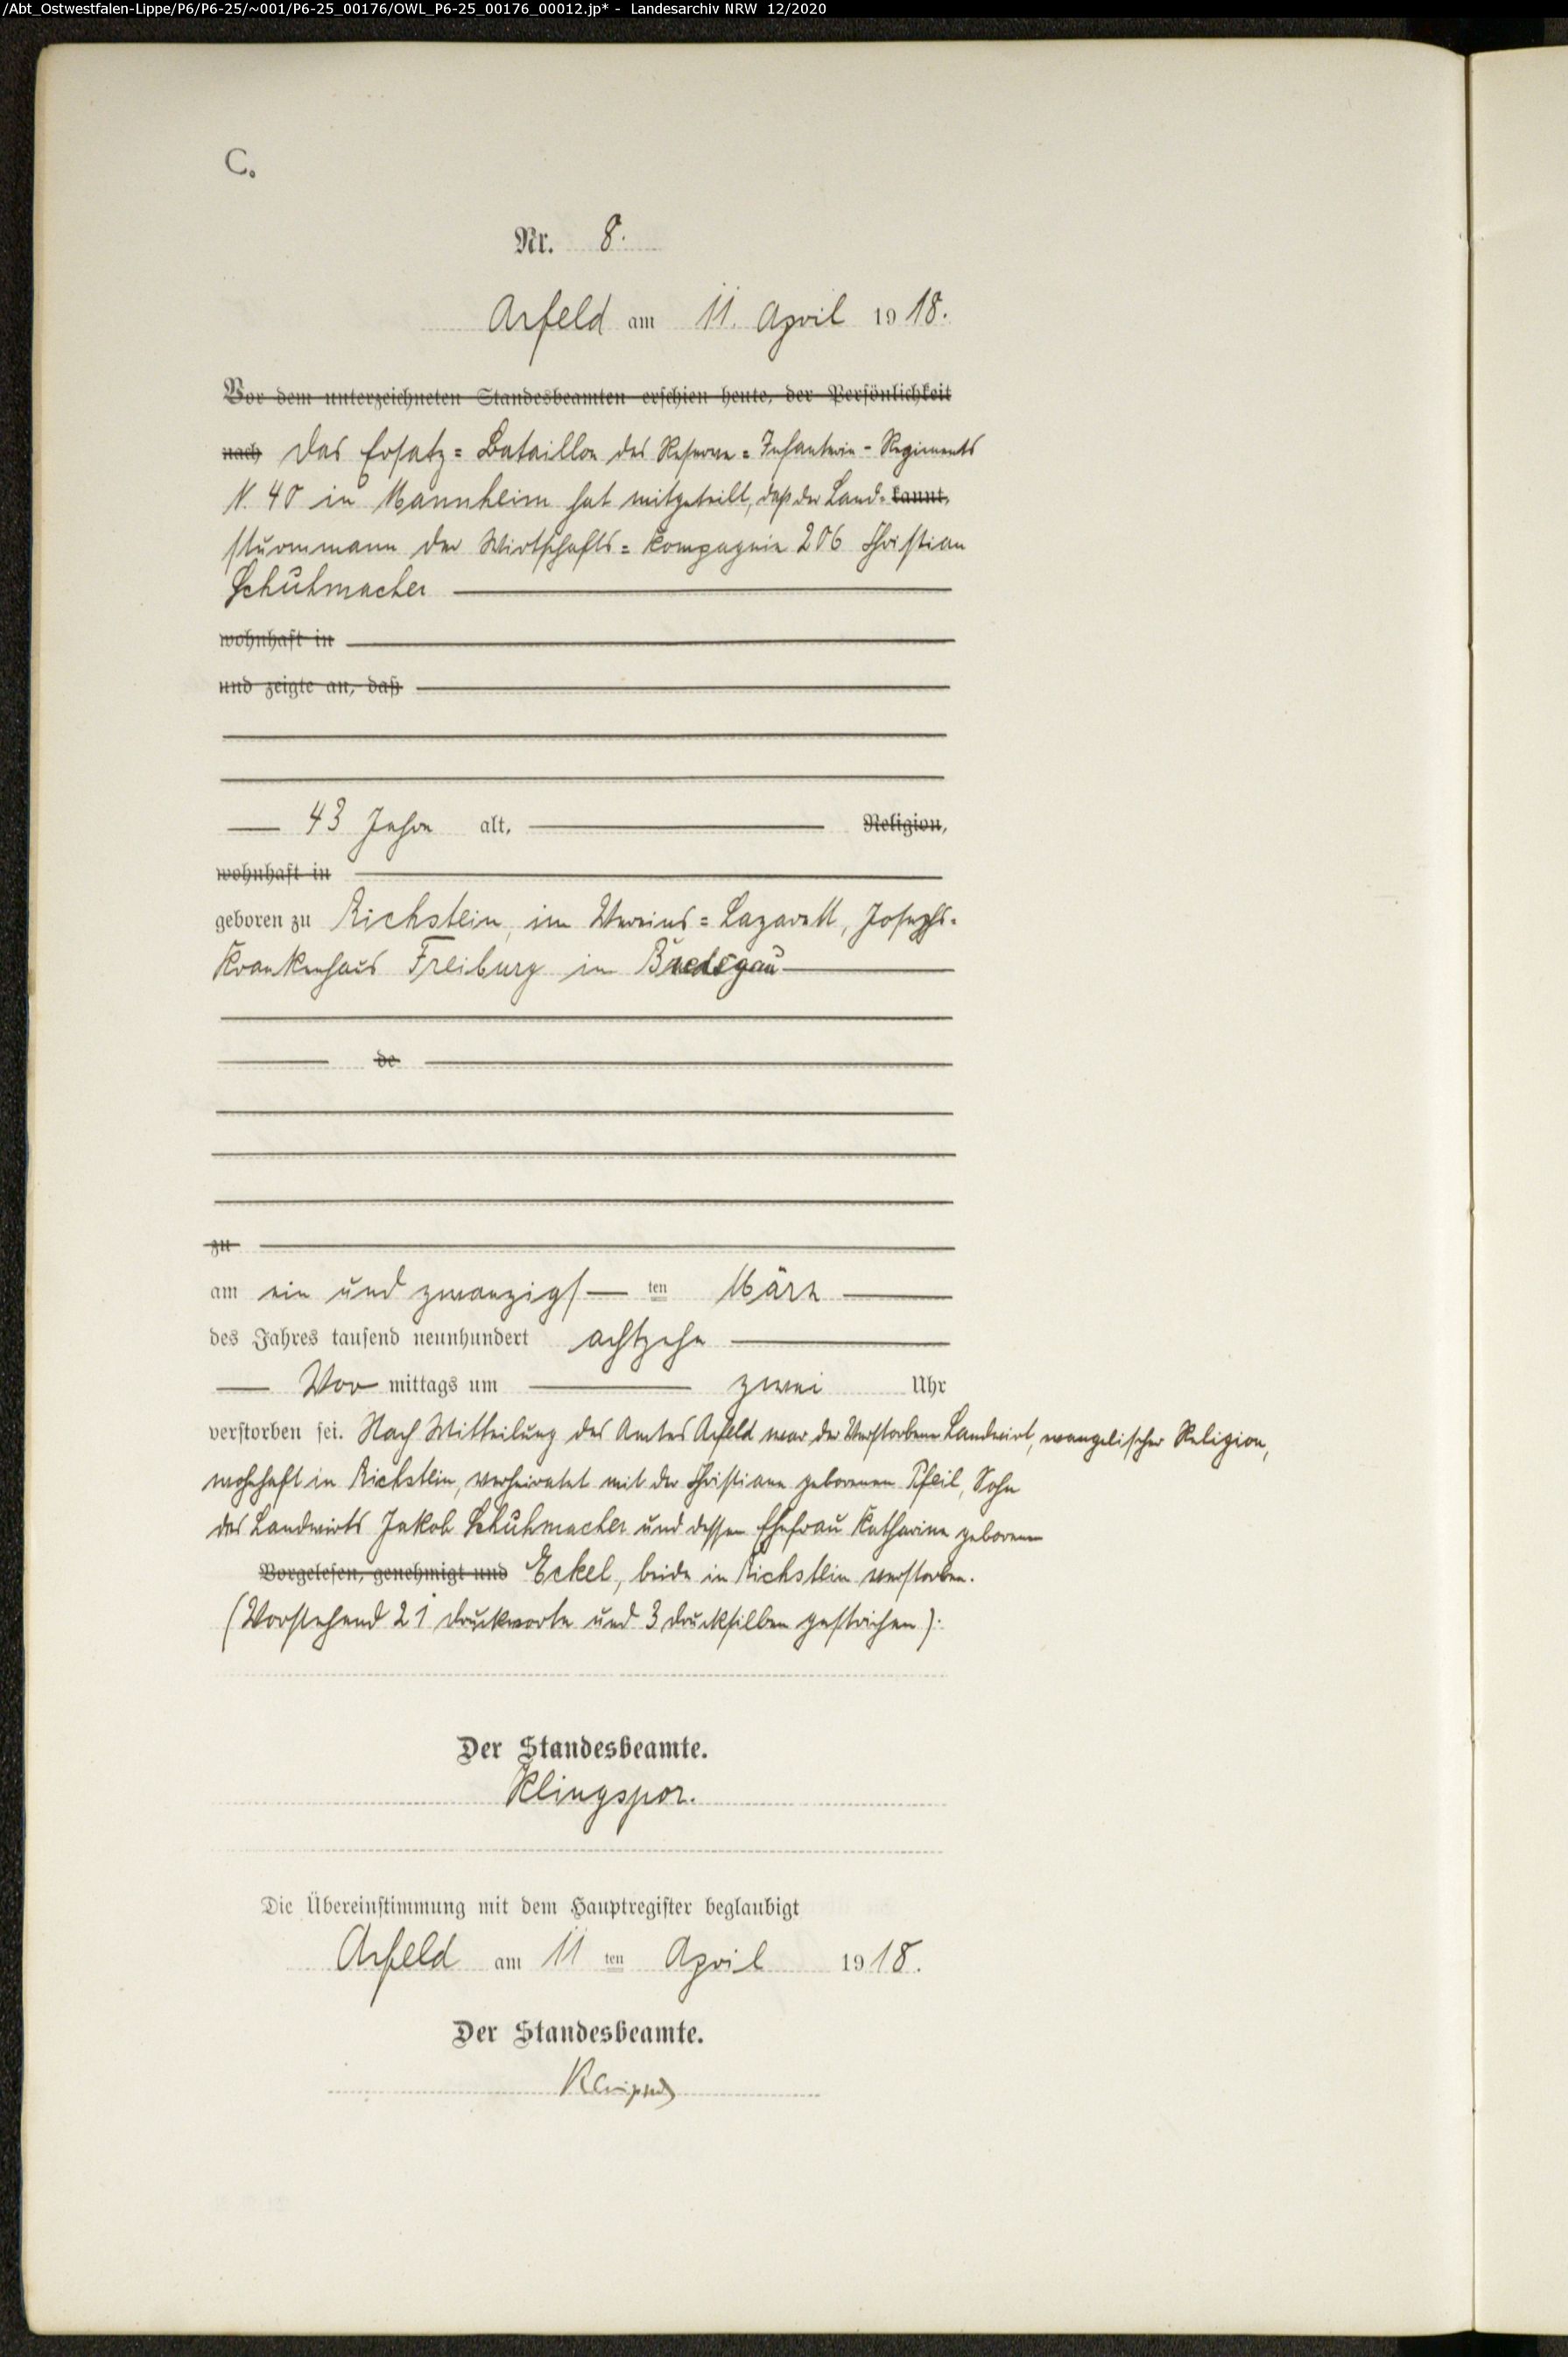 /Abt_Ostwestfalen-Lippe/P6/P6-25/~001/P6-25_00176/OWL_P6-25_00176_00012.jp* - Landesarchiv NRW 12/2020
C.
Nr. 8.
Arfeld am 11. April 1918.
Vor dem unterzeichneten Standesbeamten erschien heute, der Persönlichkeit
nach Das Ersatz=Bataillon des Reserve=Infanterie-Regiments
N. 40 in Mannheim hat mitgeteilt, daß der Land= kannt,
sturmmann der Wirtschafts=Kompagnie 206 Christian
Schuhmacher
wohnhaft in
und zeigte an, daß
43 Jahre alt, Religion,
wohnhaft in
geboren zu Richstein, im Vereins=Lazarett, Josephs-
krankenhaus Freiburg im
de
zu
am ein und zwanzigsten März
des Jahres tausend neunhundert achtzehn
Vor mittags um zwei Uhr
verstorben sei. Nach Mitteilung des Amtes Arfeld war der Verstorbene Landwirt, evangelischer Religion,
wohnhaft in Richstein, verheiratet mit der Christiane geborenen Pfeil, Sohn
des Landwirts Jakob Schuhmacher und dessen Ehefrau Katharine geborenen
Vorgelesen, genehmigt und Eckel, beide in Richstein verstorben.
(Vorstehend 21 Druckworte und 3 Drucksilben gestrichen).
Der Standesbeamte.
Klingspor.
Die Übereinstimmung mit dem Hauptregister beglaubigt
Arfeld am 11 ten April 1918.
Der Standesbeamte.